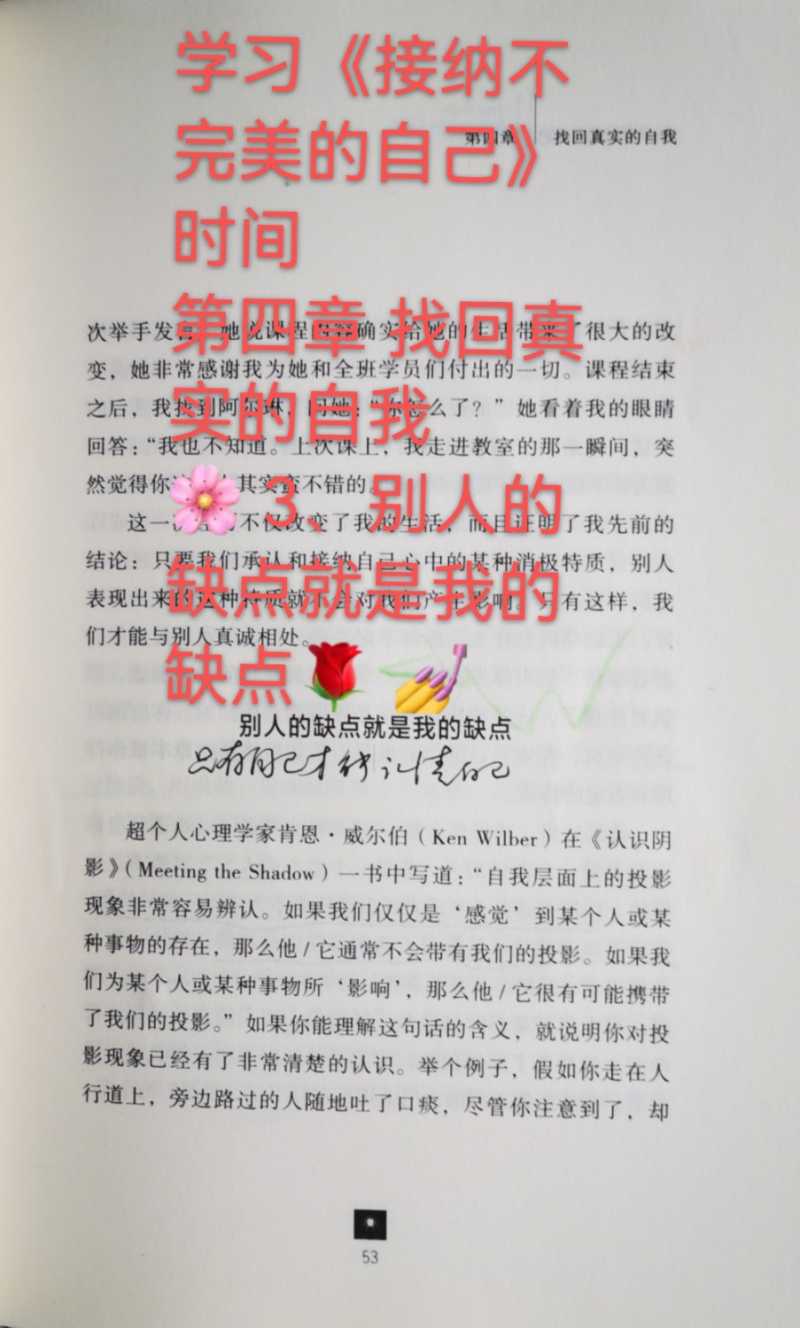 学习《接纳不
完美的自己》
时间
第四章 找回真
实的自我
3、别人的
缺点就是我的
缺点
第四章 找回真实的自我
次举手发言，她说课程内容确实给她的生活带来了很大的改
变，她非常感谢我为她和全班学员们付出的一切。课程结束
之后，我找到阿尔琳，问她：“你怎么了？”她看着我的眼睛
回答：“我也不知道。上次课上，我走进教室的那一瞬间，突
然觉得你 其实蛮不错的。”
这一 不仅改变了我的生活，而且证明了我先前的
结论：只要我们承认和接纳自己心中的某种消极特质，别人
表现出来的这种特质就不会对我们产生影响。只有这样，我
们才能与别人真诚相处。
别人的缺点就是我的缺点
只有自己才能 自己
超个人心理学家肯恩·威尔伯（Ken Wilber）在《认识阴
影》（Meeting the Shadow）一书中写道：“自我层面上的投影
现象非常容易辨认。如果我们仅仅是‘感觉’到某个人或某
种事物的存在，那么他/它通常不会带有我们的投影。如果我
们为某个人或某种事物所‘影响’，那么他/它很有可能携带
了我们的投影。”如果你能理解这句话的含义，就说明你对投
影现象已经有了非常清楚的认识。举个例子，假如你走在人
行道上，旁边路过的人随地吐了口痰，尽管你注意到了，却
53